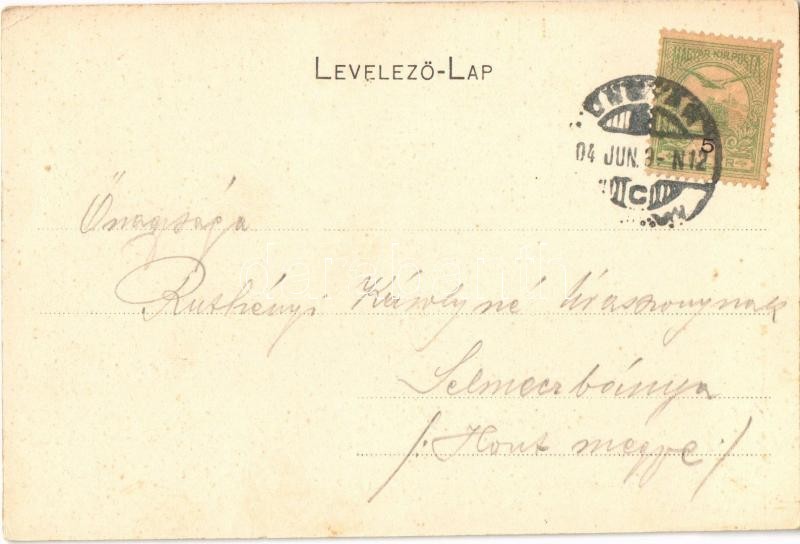 LEVELEZŐ-LAP
MAGYAR KIR. POSTA
UNGVÁR
5
04 JUN. 9- N12
C
Őnagysága
Ruthényi Károlyné úrasszonynak
Selmeczbánya
/: Hont megye :/
darabanth